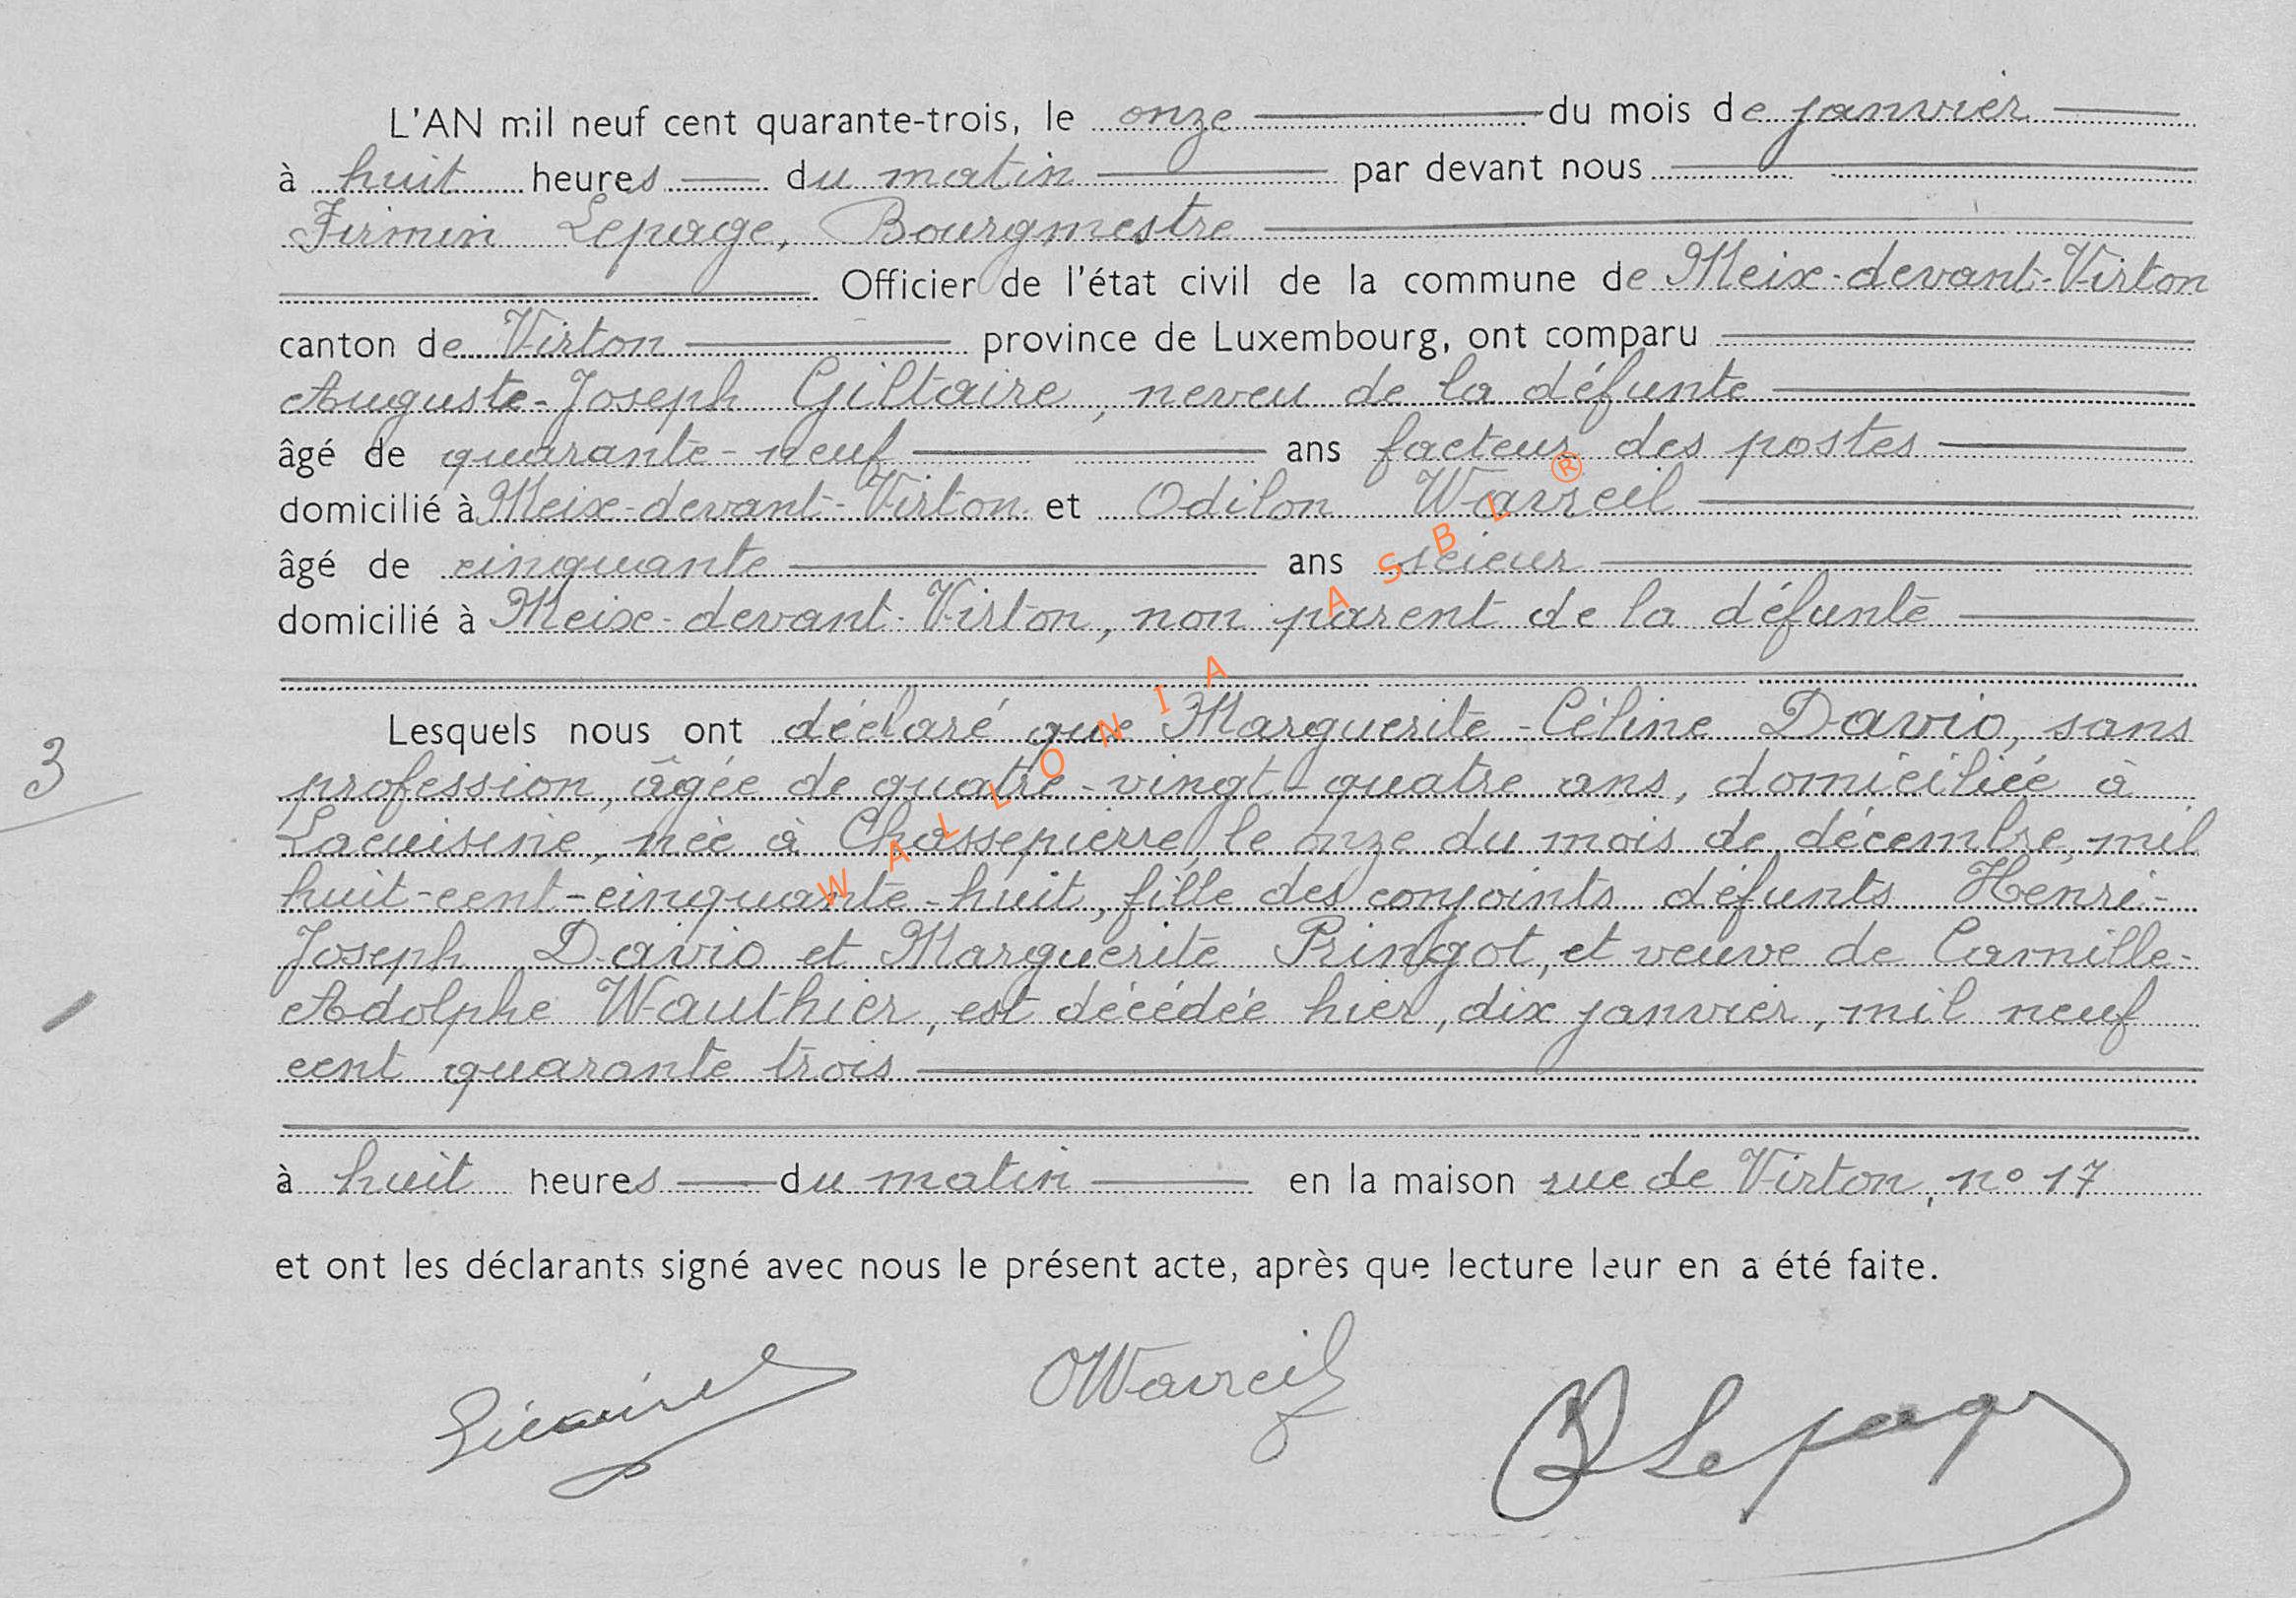 L'AN mil neuf cent quarante-trois, le onze du mois de janvier
à huit heures du matin par devant nous
Firmin Lepage, Bourgmestre
Officier de l'état civil de la commune de Meix-devant-Virton
canton de Virton province de Luxembourg, ont comparu
Auguste-Joseph Giltaire, neveu de la défunte
âgé de quarante-neuf ans facteur des postes
domicilié à Meix-devant-Virton et Odilon Wavreil
âgé de cinquante ans scieur
domicilié à Meix-devant-Virton, non parent de la défunte
Lesquels nous ont déclaré que Marguerite-Céline Davio, sans
3
profession, âgée de quatre-vingt-quatre ans, domiciliée à
Lacuisine, née à Chassepierre, le onze du mois de décembre, mil
huit-cent-cinquante-huit, fille des conjoints défunts Henri-
Joseph Davio et Marguerite Pringot, et veuve de Camille-
Adolphe Wauthier, est décédée hier, dix janvier, mil neuf
cent quarante trois
à huit heures du matin en la maison rue de Virton, n° 17
et ont les déclarants signé avec nous le présent acte, après que lecture leur en a été faite.
OWavreil
Lepage
WALLONIA ASBL ®